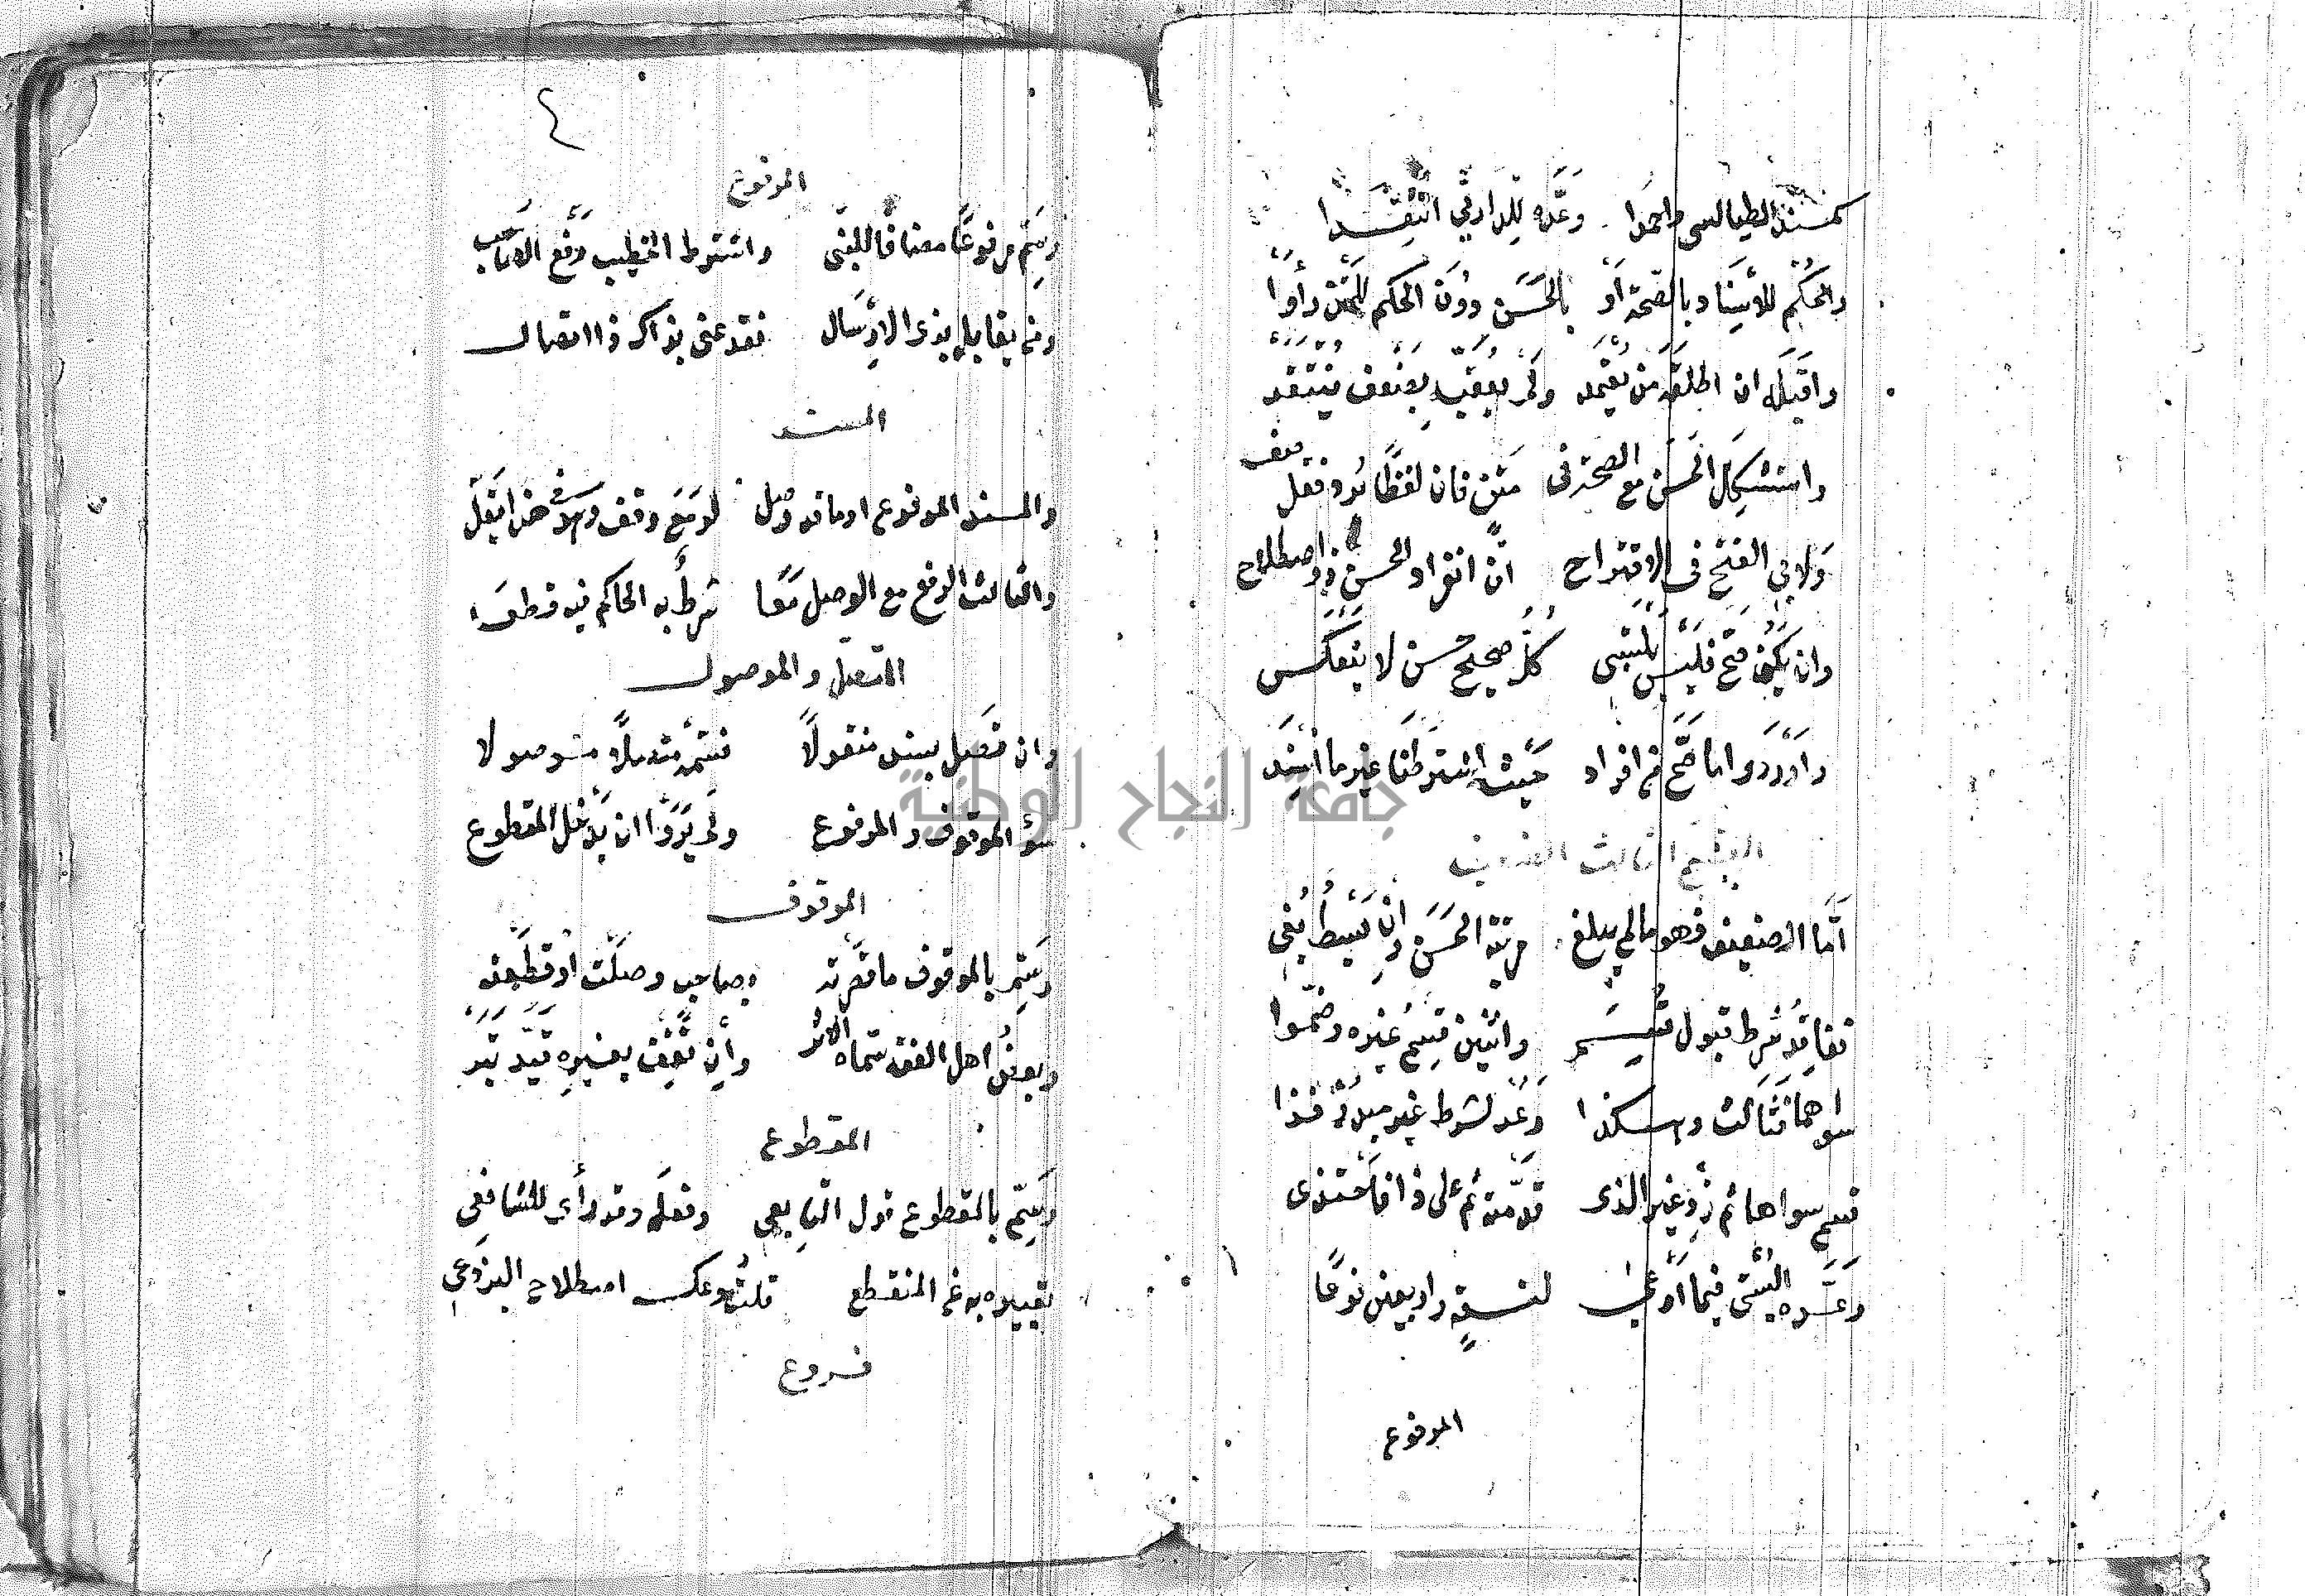 كمسند الطيالسي واحمدا وَعَدُّه لِلدارميِّ انْتُقِدَا
والحُكْمُ للاسْنِاد بالصّحة أَوْ بالحُسْنِ دُوْنَ الحكم لِلمَتْنِ رأَوْا
واقبَله ان اطلقه مَن يُعْتمد ولم يُعقِّب بِضَعف يُنتَقد
واستُشكِل الحسن مع الصحة في مَتْن فان لفظًا يُرد فقل صف
وَلابي الفتح في الاقتراح انَّ انفراد الحسن ذو اصطلاح
وان يكُن صَحّ فليْسَ يلتبس كُلُّ صحيح حسن لا ينعكس
واَوْرَدوا ما صَحَّ من افراد حَيْثُ اشترطنا غيْر ما اسْنِاد
القسم الثالث الضعيف
أمّا الضعيف فهو ما لم يبلغ مرتبة الحُسْن وإنْ بَسْطٌ بُغي
ففاقِدٌ شرط قبول قِسْم واثنين قِسْمٌ غيره وضمّوا
سواهما فثالث وهكذا وَعُدْ لشرط غيْر مبدُوٍّ فذا
قسم سواها ثم زِدْ غير الذي قدّمته ثم على ذا فاحْتذي
وَعَدَّه البُسْتي فيما أَوْعى لتسعةٍ واربعين نوعًا
الموفوع
٤
المرفوع
وسَمِّ مرفوعًا مضافًا للنبي واشترط الخطيب رَفْع الصاحب
ومن يقابله بذي الارْسَال فقد عنى بذاك ذا اتصال
المسند
والمسند المرفوع او ما قد وُصل لو مَعَ وقف وَهو في هذا يَقلّ
والثالث الرفع مع الوصل مَعًا شرطٌ به الحاكم فيه قطعَا
المتصل والموصول
وان تَصل بسند منقولًا فسَمِّه متصلًا موصولا
سوٌ الموقوف والمرفوع ولم يَرَوْا ان يَدْخُل المقطوع
الموقوف
وسَمِّ بالموقوف ما قَصَرته بصاحب وصلْت او قطَعْته
وبعضُ اهل الفقه سَمّاه الاثر وإن تَقِفْ بغيره قيّد تَبَر
المقطوع
وسَمِّ بالمقطوع قول التابعي وفعلَه وقد رأى للشافعِي
تعبيره به عن المنقطع قلتُ وعكسه اصطلاح البردعي
فروع